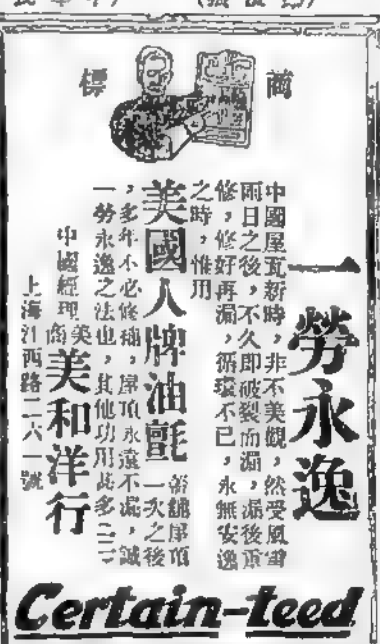 商標
一勞永逸
中國屋瓦新時，非不美觀，然受風雷
雨日之後，不久即破裂而漏，漏後重
修，修好再漏，循環不已，永無安逸
之時，惟用
美國人牌油氈 舖屋頂一次之後
，多年不必修補，屋頂永遠不漏，誠
一勞永逸之法也，其他功用甚多
中國經理美商美和洋行
上海江西路二六一號
Certain-teed